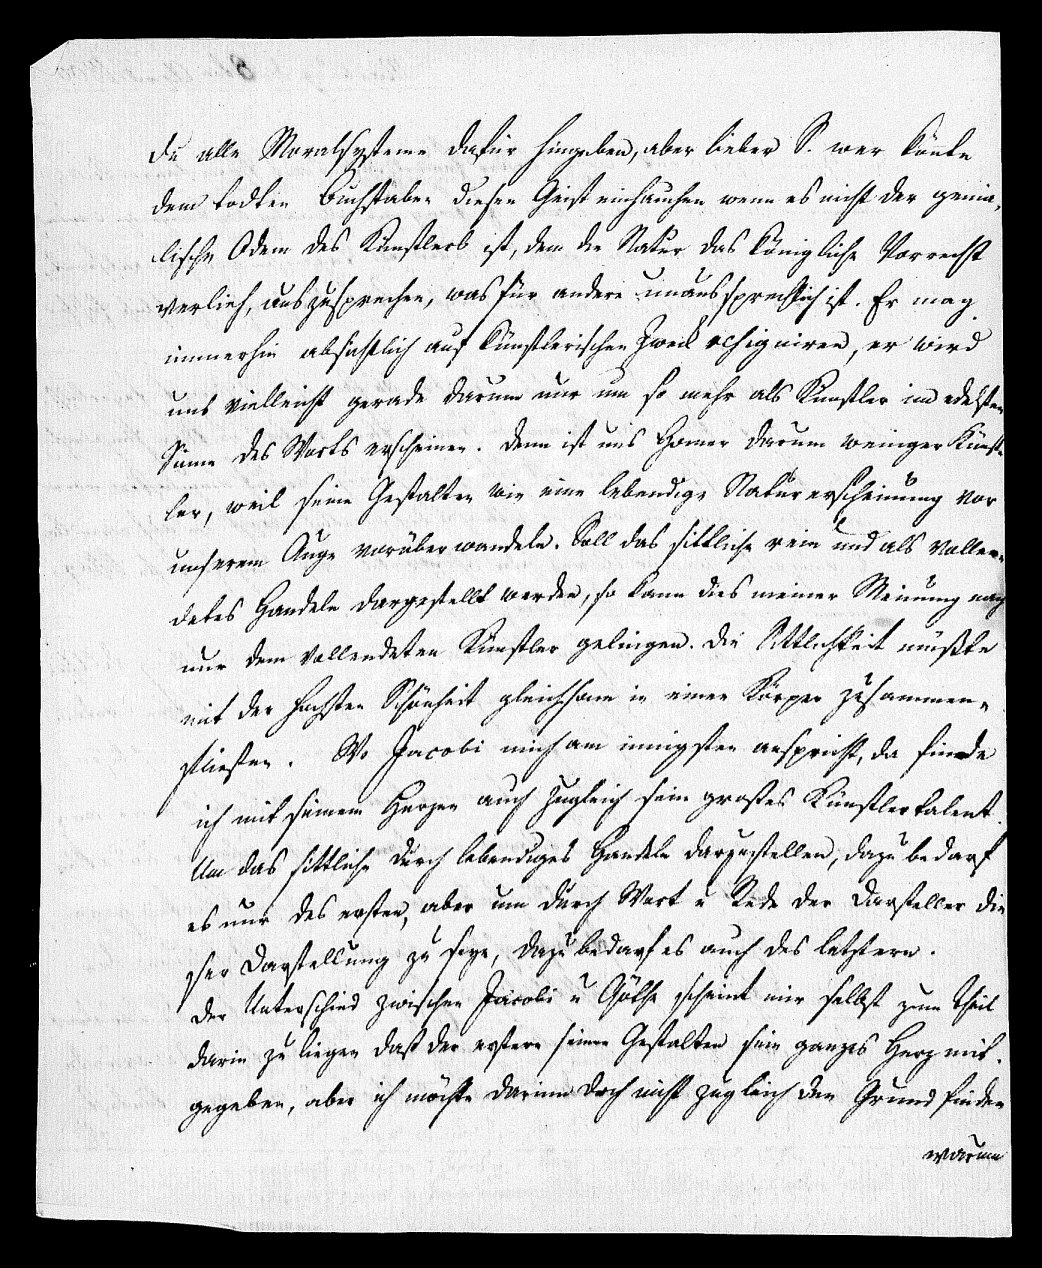 du alle Moralsysteme dafür hingeben, aber lieber S. wer könte
dem todten Buchstaben diesen Geist einhauchen wenn es nicht der genia,
lische Odem des Künstlers ist, dem die Natur das königliche Vorrecht
verlieh, auszusprechen, was für andere unaussprechlich ist. Er mag
immerhin absichtlich auf künstlerischen Zweck resigniren, er wird
uns vielleicht gerade darum nur um so mehr als Künstler im edelsten
Sinne des Worts erscheinen. Denn ist uns Homer darum weniger Künst
ler, weil seine Gestalten wie eine lebendige Naturerscheinung vor
unserem Auge vorüber wandeln. Soll das sittliche rein und als vollen-
detes Handeln dargestellt werden, so kann dies meiner Meinung nach
nur dem vollendeten Künstler gelingen. Die Sittlichkeit müßte
mit der höchsten Schönheit gleichsam in einen Körper zusammen-
fließen. Wo Jacobi mich am innigsten anspricht, da finde
ich mit seinem Herzen auch zugleich sein großes Künstlertalent.
Um das sittliche durch lebendiges Handeln darzustellen, dazu bedarf
es nur des ersten, aber um durch Wort u Rede der Darsteller die
ser Darstellung zu seyn, dazu bedarf es auch des letztern.
Der Unterschied zwischen Jacobi u Göthe scheint mir selbst zum Theil
darin zu liegen daß der erstere seinen Gestalten sein ganzes Herz mit-
gegeben, aber ich möchte darinn doch nicht zugleich den Grund finden
warum